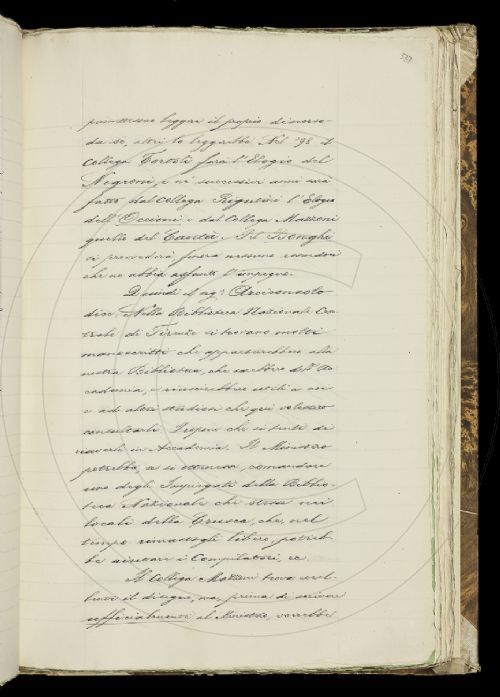 537
potessero leggere il proprio discorso
da sé, altri lo leggerebbe. Nel '98 il
Collega Tortoli farà l'Elogio del
Negroni, e ne' successivi anni sarà
fatto dal Collega Rigutini l'Elogio
dell'Occioni e dal Collega Mazzoni
quello del Cantù. Il Bonghi
si provvederà, finora nessuno
che ne abbia assunto l'impegno.
Quindi il sig.r Arciconsolo
dice: Nella Biblioteca Nazionale Cen-
trale di Firenze si trovano molti
manoscritti che apparterrebbero alla
nostra Biblioteca, che sarebbe dell'Ac-
cademia, e riuscirebbero utili a noi
e ad altri studiosi che qui volessero
consultarli. Propone che si tenti di
riaverli in Accademia. Il Ministro
potrebbe, se si ottenesse, comandare
uno degli Impiegati della Biblio-
teca Nazionale che stesse nei
locali della Crusca, che, nel
tempo rimastogli libero, potreb-
be aiutare i Compilatori, ec.
Il Collega Mazzoni trova
il disegno, ma, prima di scrivere
ufficialmente al Ministro, vorrebbe